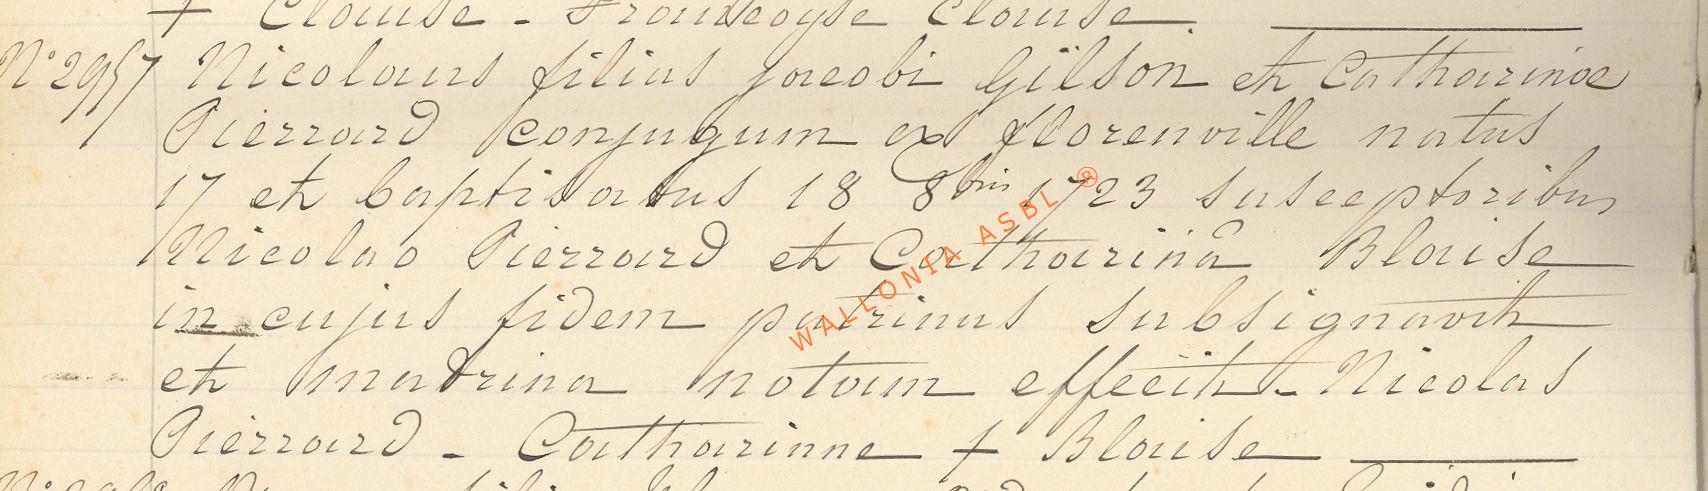 + Clause - Francoyse Clause
N° 2957 Nicolaus filius jacobi Gïlson et Catharinae
Pierrard conjugum ex florenville natus
17 et baptisatus 18 8bris 1723 susceptoribus
Nicolao Pierrard et Catharina Blaise
in cujus fidem patrinus subsignavit
et matrina notam effecit - Nicolas
Pierrard - Catharinne + Blaise
WALLONIA ASBL ®